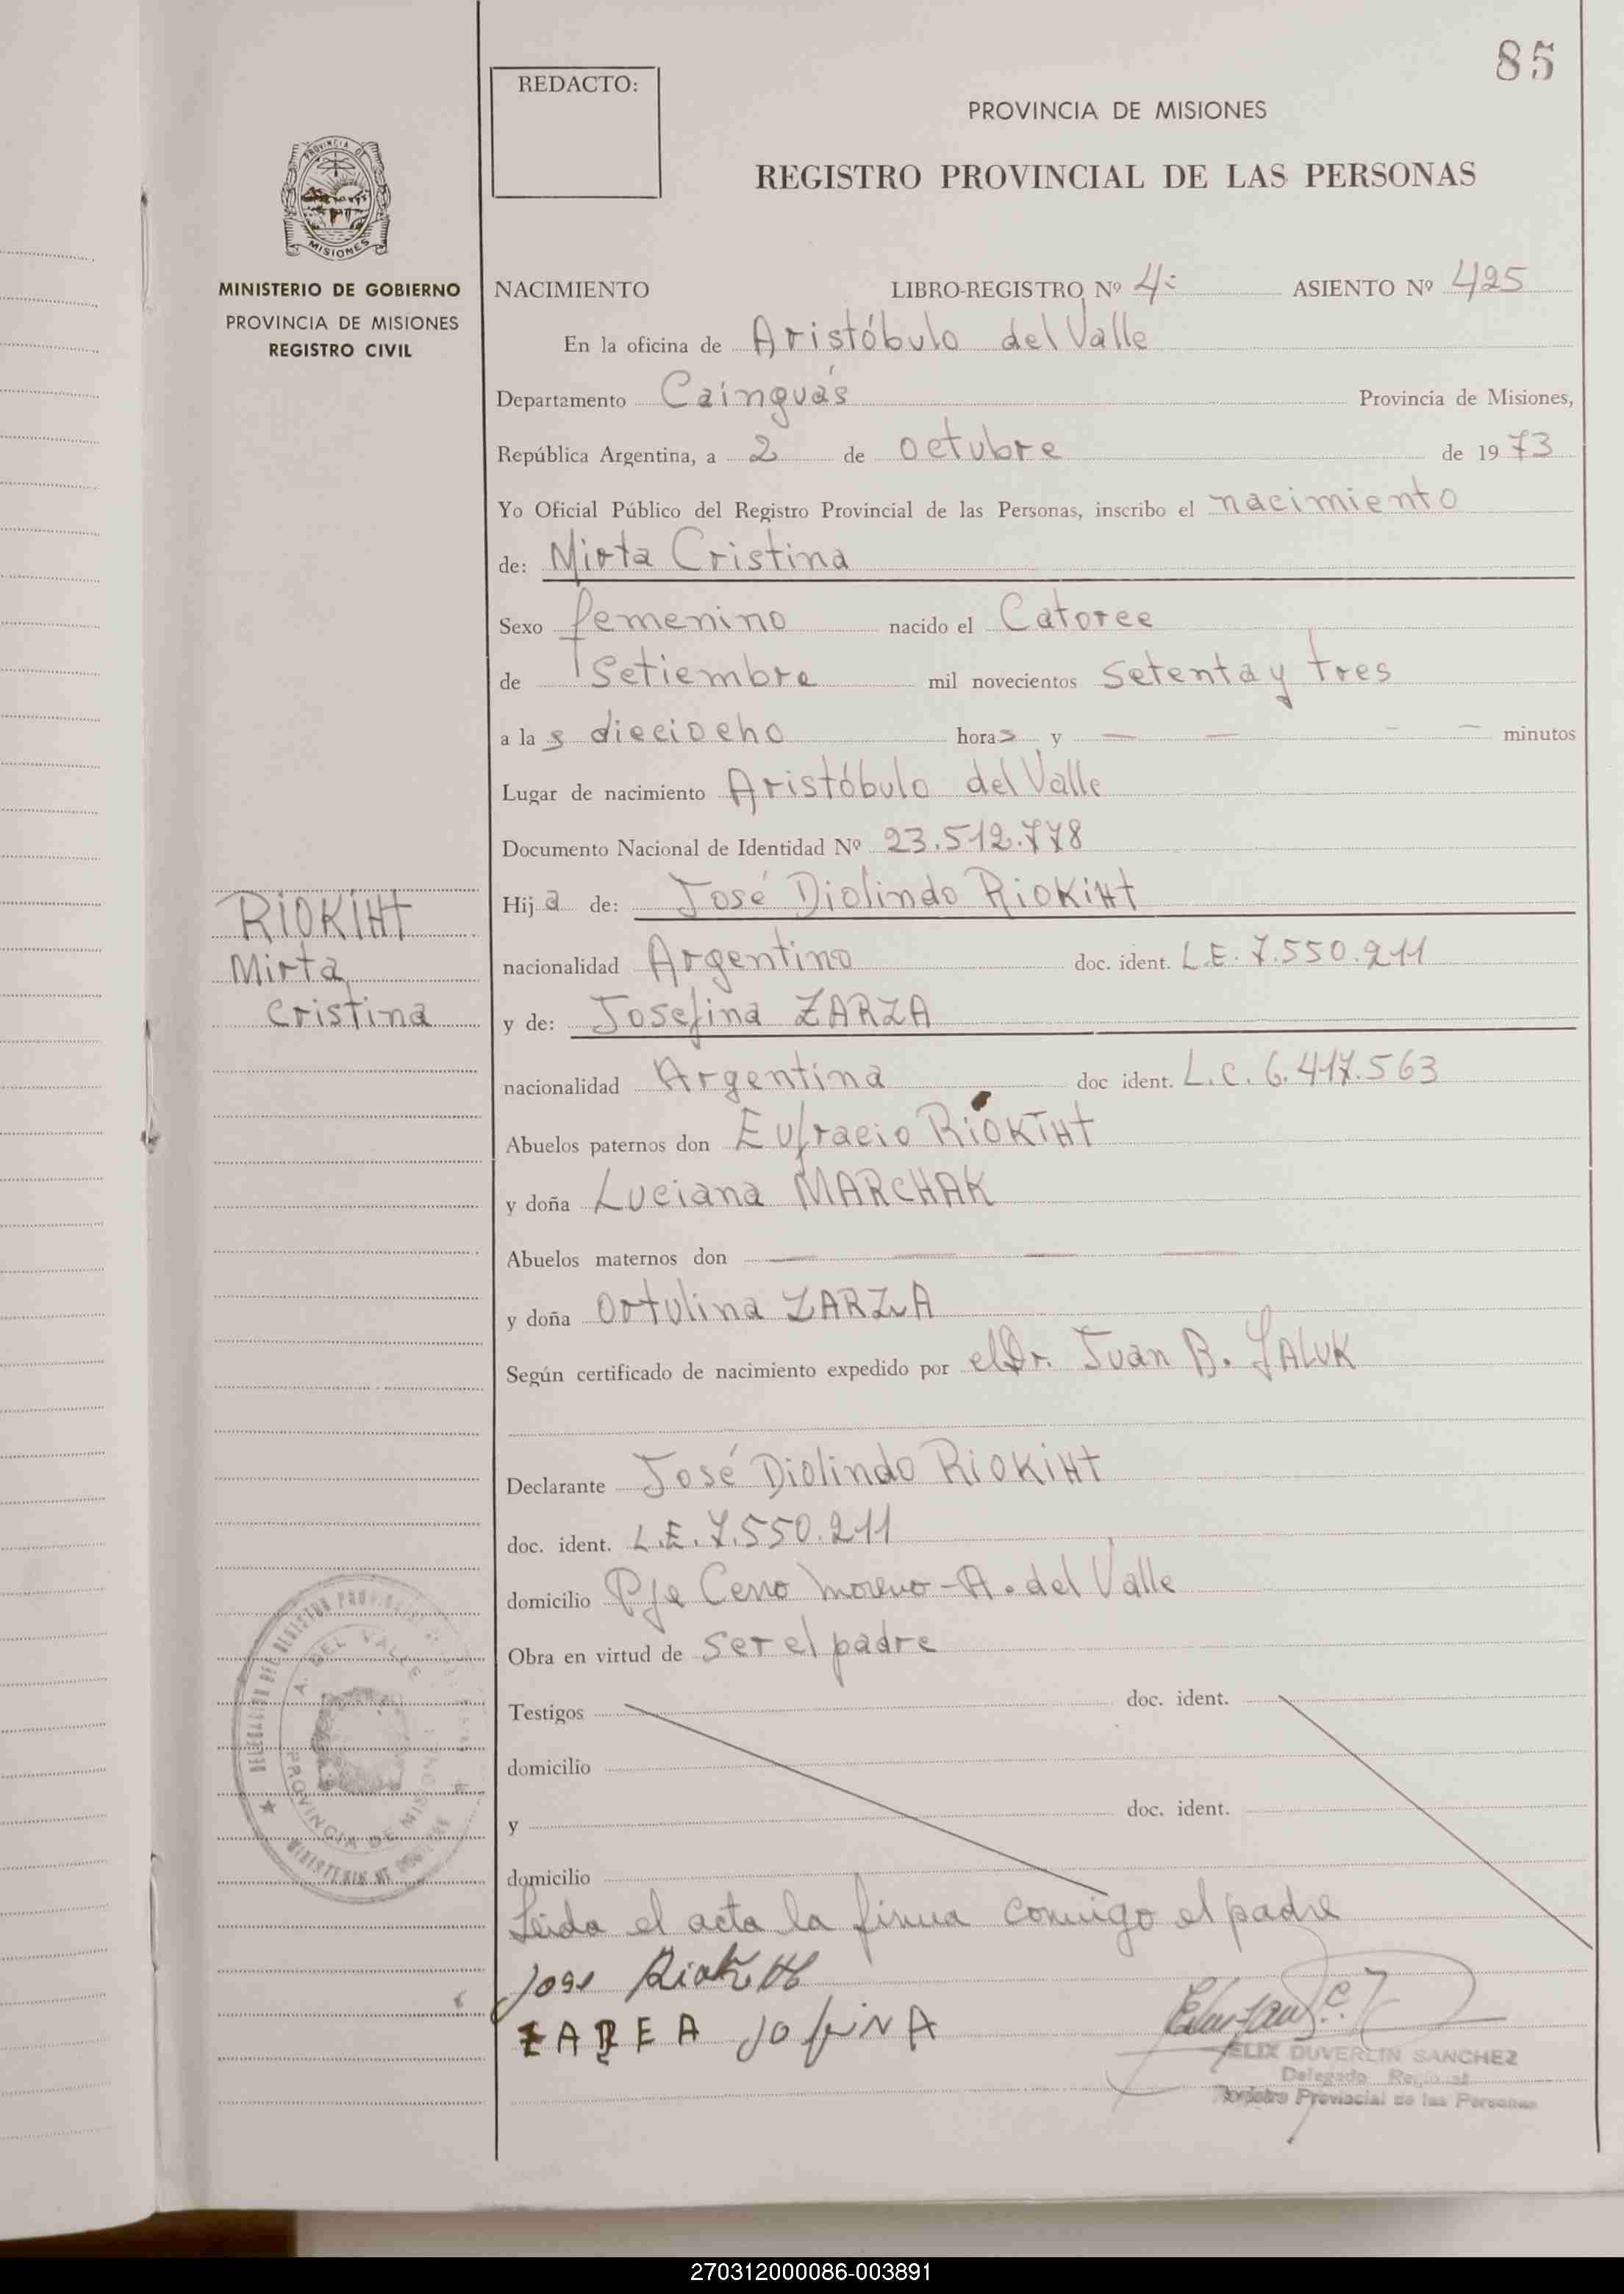 85
REDACTO:
PROVINCIA DE MISIONES
REGISTRO PROVINCIAL DE LAS PERSONAS
PROVINCIA DE
MISIONES
MINISTERIO DE GOBIERNO
PROVINCIA DE MISIONES
REGISTRO CIVIL
NACIMIENTO LIBRO-REGISTRO Nº 4: ASIENTO Nº 425
En la oficina de Aristóbulo del Valle
Departamento Cainguás Provincia de Misiones,
República Argentina, a 2 de octubre de 1973
Yo Oficial Público del Registro Provincial de las Personas, inscribo el nacimiento
de: Mirta Cristina
Sexo femenino nacido el Catorce
de Setiembre mil novecientos setenta y tres
a las dieciocho horas y — — — — minutos
Lugar de nacimiento Aristóbulo del Valle
Documento Nacional de Identidad Nº 23.512.778
Hija de: José Diolindo RioKiHt
nacionalidad Argentino doc. ident. L.E. 7.550.211
y de: Josefina ZARZA
nacionalidad Argentina doc ident. L.C. 6.417.563
Abuelos paternos don Eufracio RIOKIHt
y doña Luciana MARCHAK
Abuelos maternos don — — — —
y doña Ortulina ZARZA
Según certificado de nacimiento expedido por el Dr. Juan B. SALUK
Declarante José Diolindo RioKiHt
doc. ident. L.E. 7.550.211
domicilio Pje Cerro Moreno - A. del Valle
Obra en virtud de ser el padre
Testigos doc. ident.
domicilio
y doc. ident.
domicilio
Leida el acta la firma conmigo el padre
Jose
ZAREA JOfiNA
FELIX DUVERLIN SANCHEZ
Delegado Regional
Registro Provincial de las Personas
RIOKIHt
Mirta
Cristina
DELEGACION DEL REGISTRO PROVINCIAL
A. DEL VALLE
PROVINCIA DE MISIONES
MINISTERIO DE
270312000086-003891